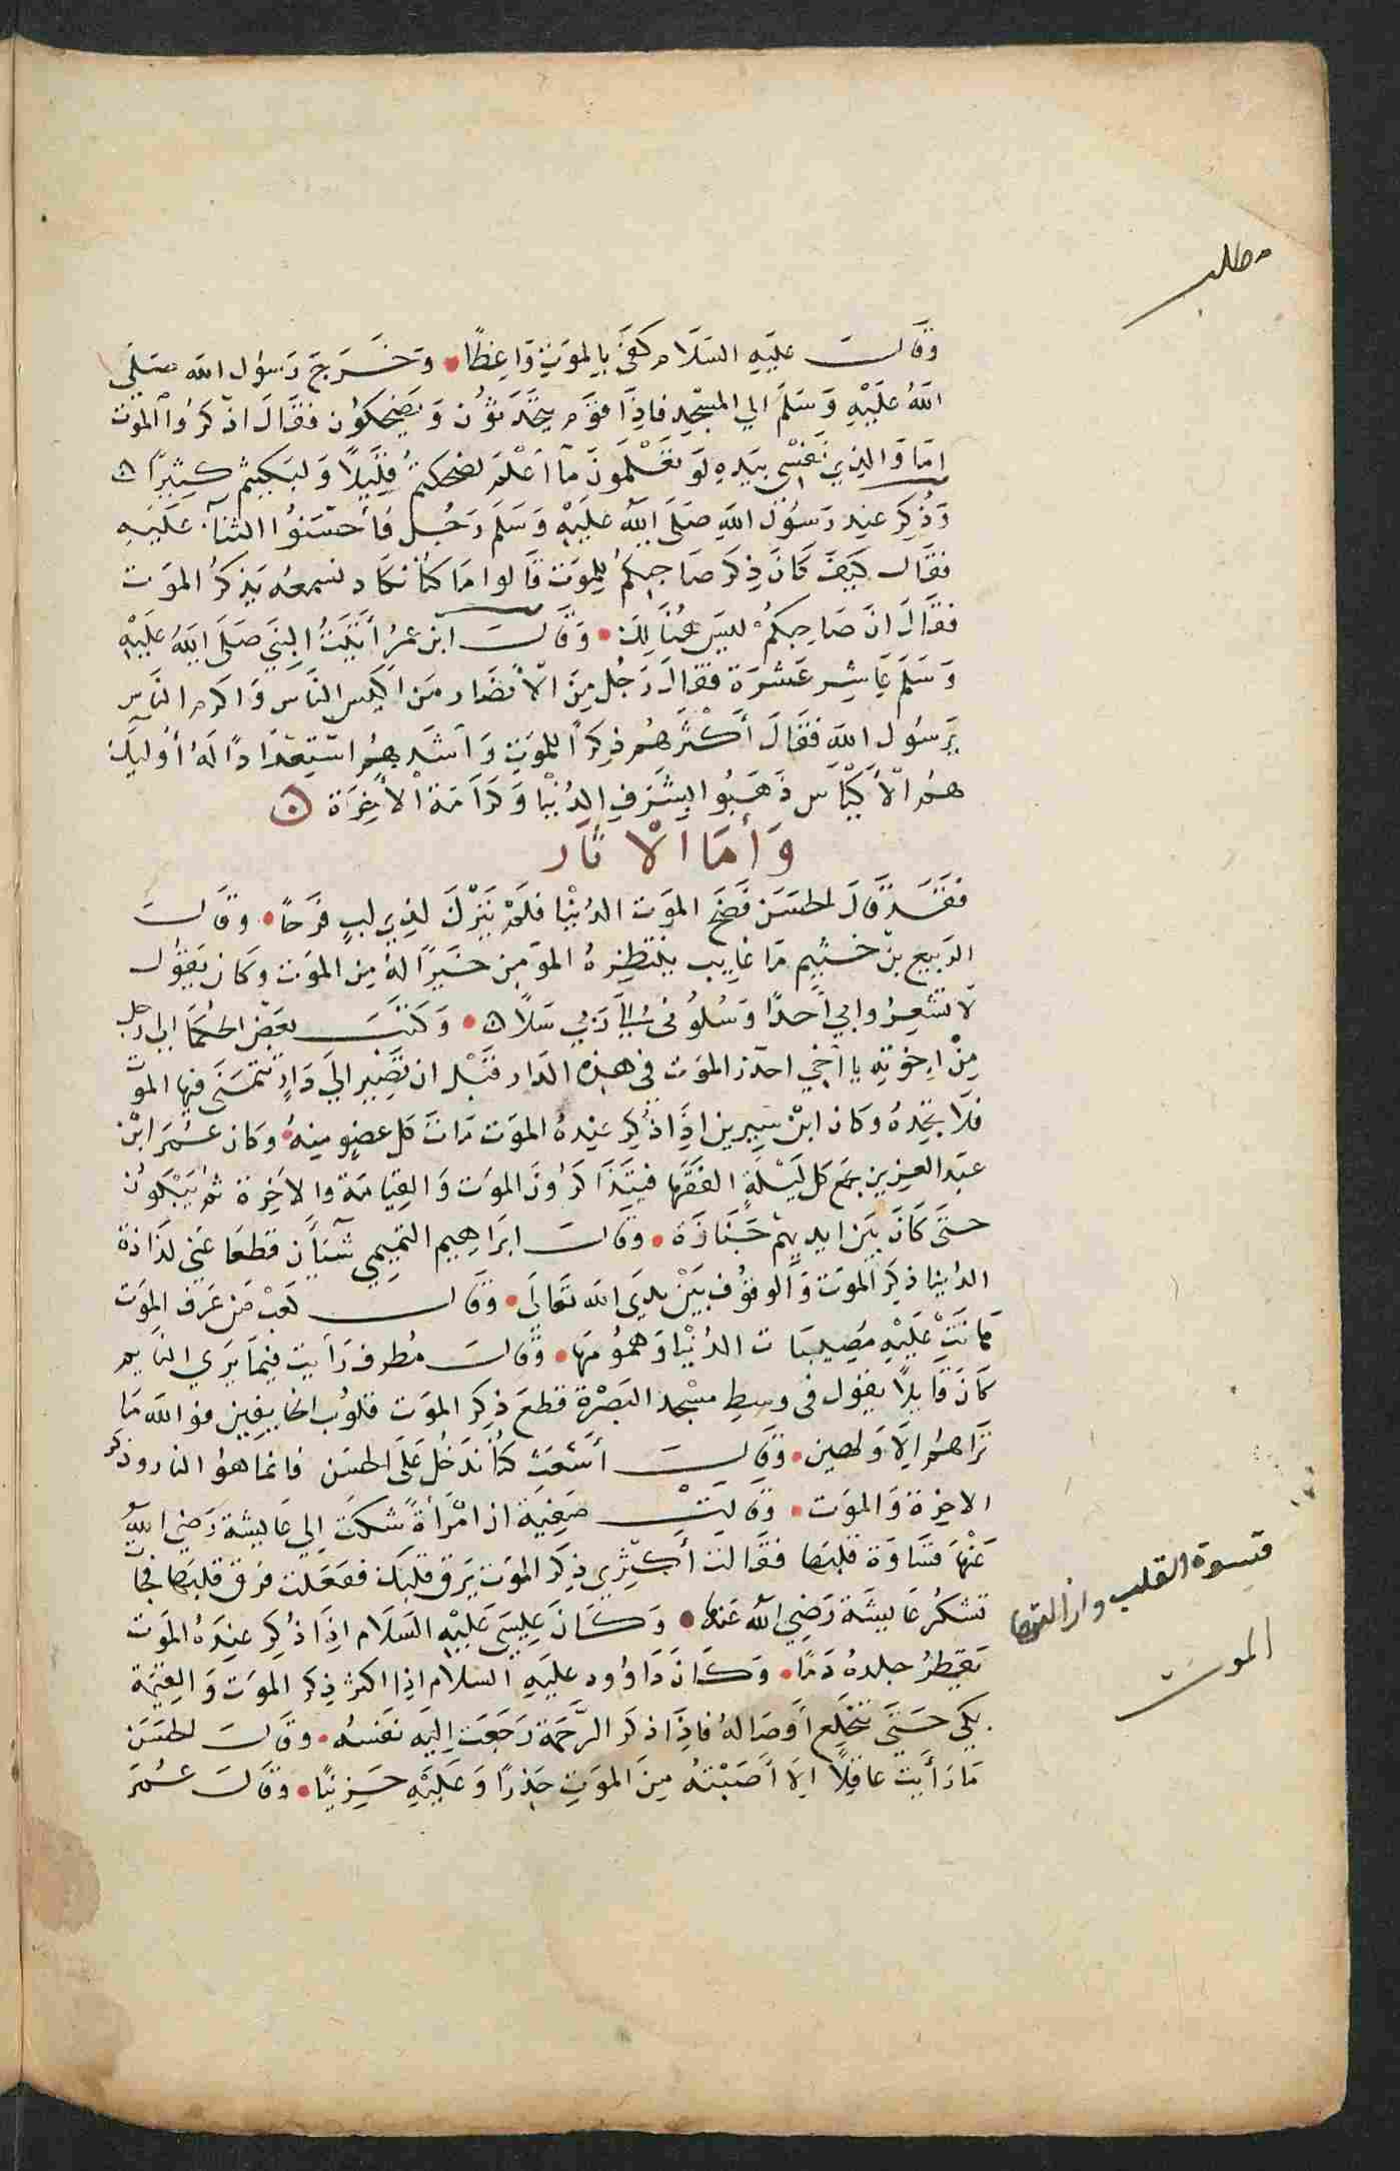 مطلب
وَقَالَ عَلَيْهِ السَلَام كَفَى بِالمَوْتِ وَاعِظًا • وَخَرَجَ رَسُول الله صَلَى
اللهُ عَلَيْهِ وَسَلَمَ الي المَسْجِدِ فاِذَا قَوْم يَتَحَدَثُوْن وَيَضْحَكوُن فقَالَ اذْكرُوا الموت
امَا وَالذِي نَفْسِي بِيَدِهِ لَوْ تَعْلَمُونَ مَا اعْلَمُ لضحكتمُ قَلِيْلًا وَلبَكيتم كثِيْرًا ۞
وَذُكِرَ عِنْدَ رَسُوْل اللهِ صَلَى اللهُ عَلَيْهِ وَسَلَمَ رَجُل فَأحْسَنوُا الثنآء عَلَيْهِ
فقَال كَيْفَ كَانَ ذِكرَ صَاحِبِكُم لِلمَوْت قَالوا مَا كنُا نكَاد نسمعُه يَذكرُ الموَت
فقَالَ انَ صَاحِبَكمُ لَيسَ هُنَالِكَ • وَقَالَ ابْن عمرُ أَتَيْتُ النَبِيَ صَلَى اللهُ عَلَيْهِ
وَسَلَمَ عَاشِر عَشَرَة فقَالَ رَجُل مِنَ الْأنْصَار مَن اكيَس النَاس وَاكرَم الناس
يرَسُول اللهِ فقَالَ أَكْثَرهُم ذِكرًا لِلموَتِ وَاشَدهُم اسْتِعْدَادًا لَهُ أُوليِكَ
هُم الْأكيَاس ذَهَبُوا بِشَرَفِ الدُنْيَا وَكَرَامَة الْأخِرَة ۞
وَأمَا الْاثَار
فقَدْ قَالَ الحسَن فَضَحَ الموَت الدُنْيَا فلَمْ يَتْرُكَ لِذِي لبٍ فرَحًا • وقَالَ
الرَبِيع بنْ خثيم مَا غايب ينْتَظِرهُ المؤمِن خَيْرًا لَهُ مِن الموَت وكَان يَقوُل
لَا تشْعِرُوا بي أحَدًا وَسُلوُني اليَ رَبي سَلاً ۞ • وَكتَبَ بعَض الحكمَا اليَ رجل
مِنْ اِخْوَتِهِ يا اخي احذر الموَت في هَذِهِ الدَار قَبْل ان تَصِير اليَ دَارٍ تتمنَى فيها الموت
فلَا تجِدهُ وكان ابْن سِيرِين اِذَا ذُكِرَ عِنْدهُ الموَت مَاتَ كل عضوٍ منِهُ • وكان عُمَر ابْن
عبَد العزِيز يجمَع كل لَيْلَةٍ الفقَهَا فيَتَذَاكرُوْنَ الموَت وَالقِيَامَة والاخِرة ثم يَبْكوُنَ
حتىَ كَانَ بَيْنَ ايديهمْ جَنَازَة • وقَالَ ابرَاهِيم التَيِمِي شَيْأَن قطعَا عَني لذَاذة
الدُنيا ذِكرَ الموَت وَالوقوُف بَيْنَ يدَي الله تعَالَى • وَقَالَ كعَبْ مَن عرَف الموَت
هَانَتْ عَلَيْهِ مُصِيبَات الدُنْيَا وَهمُوُمهَا • وَقَالَ مُطرف رَأيت فيمَا يرَي النايم
كَانَ قَايلًا يقوُل في وسطِ مسْجد البَصْرة قطعَ ذِكر الموَت قلوُب الخايفِين فوَالله مَا
ترَاهُم الَا وَلهين • وَقَالَ أشْعَث كنُا ندَخُل عَلَى الحسَن فانما هوُ النار وذكر
الاخِرة وَالموَت • وَقَالَتْ صَفِيَة ان امْرَأةً شكتْ الي عَايشة رَضِي اللهُ
عَنْهَا قسَاوَة قلبَها فقَالت أكثِرِي ذِكرَ الموَت يرَق قلبَك ففعَلت فرَق قلبَها فجَات
تشكرُ عَايشَة رَضِي اللهُ عَنها • وَكَانَ عِيسَى عَلَيْهِ السَلَام اذَا ذُكِرَ عِنْدَهُ الموَت
يَقطرُ جلدهُ دَمًا • وَكَانَ دَاوُود عَلَيَهِ السلام اذِا اكثرَ ذِكر الموَت وَالقِيَمَة
بَكي حَتىَ تنخَلِع أوصَالهُ فاِذَا ذكرَ الرَحْمَة رَجعَت اِليْه نَفَسهُ • وقَالَ الحسَن
مَا رَأيت عَاقِلًا الَا أصَبْتهُ مِنَ الموَتِ حَذِرًا وَعَلَيْهِ حَزِينًا • وقَالَ عُمَر
قسوة القلب
الموت